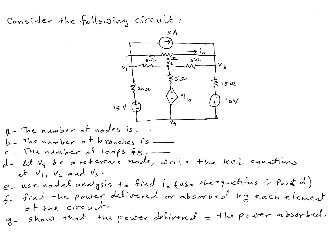 Consider the following circuit:
5A
io
V1
V3
5Ω
15Ω
15V
10V
V4
a- The number of nodes is ...
b- The number of branches is
c- The number of loops is
d- Let V4 be a reference node, write the KCL equations
at V1, V2 and V3.
e- use nodal analysis to find io (use the equations in Part d)
f- find the power delivered or absorbed by each element
of the circuit.
g- show that the power delivered = the power absorbed.